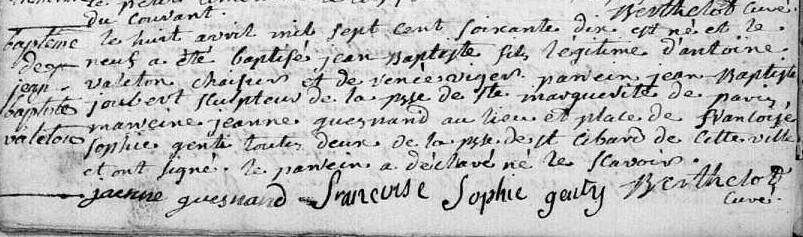 du Courant. Berthelot Curé.
baptême le huit avril mil sept cent soixante dix est né et le
de neuf a été baptisé jean Baptiste fils légitime d'antoine
jean- valeton chaisier et de parein jean Baptiste
baptiste joubert sculpteur de la psse de ste marguerite de paris,
valeton mareine jeanne quesnand au lieu et place de francoise
sophie genti toutes deux de la psse de st Cibard de cette ville
et ont signé. le parein a déclaré ne le scavoir.
jaenne quesnand francoise Sophie genty Berthelot
Curé.